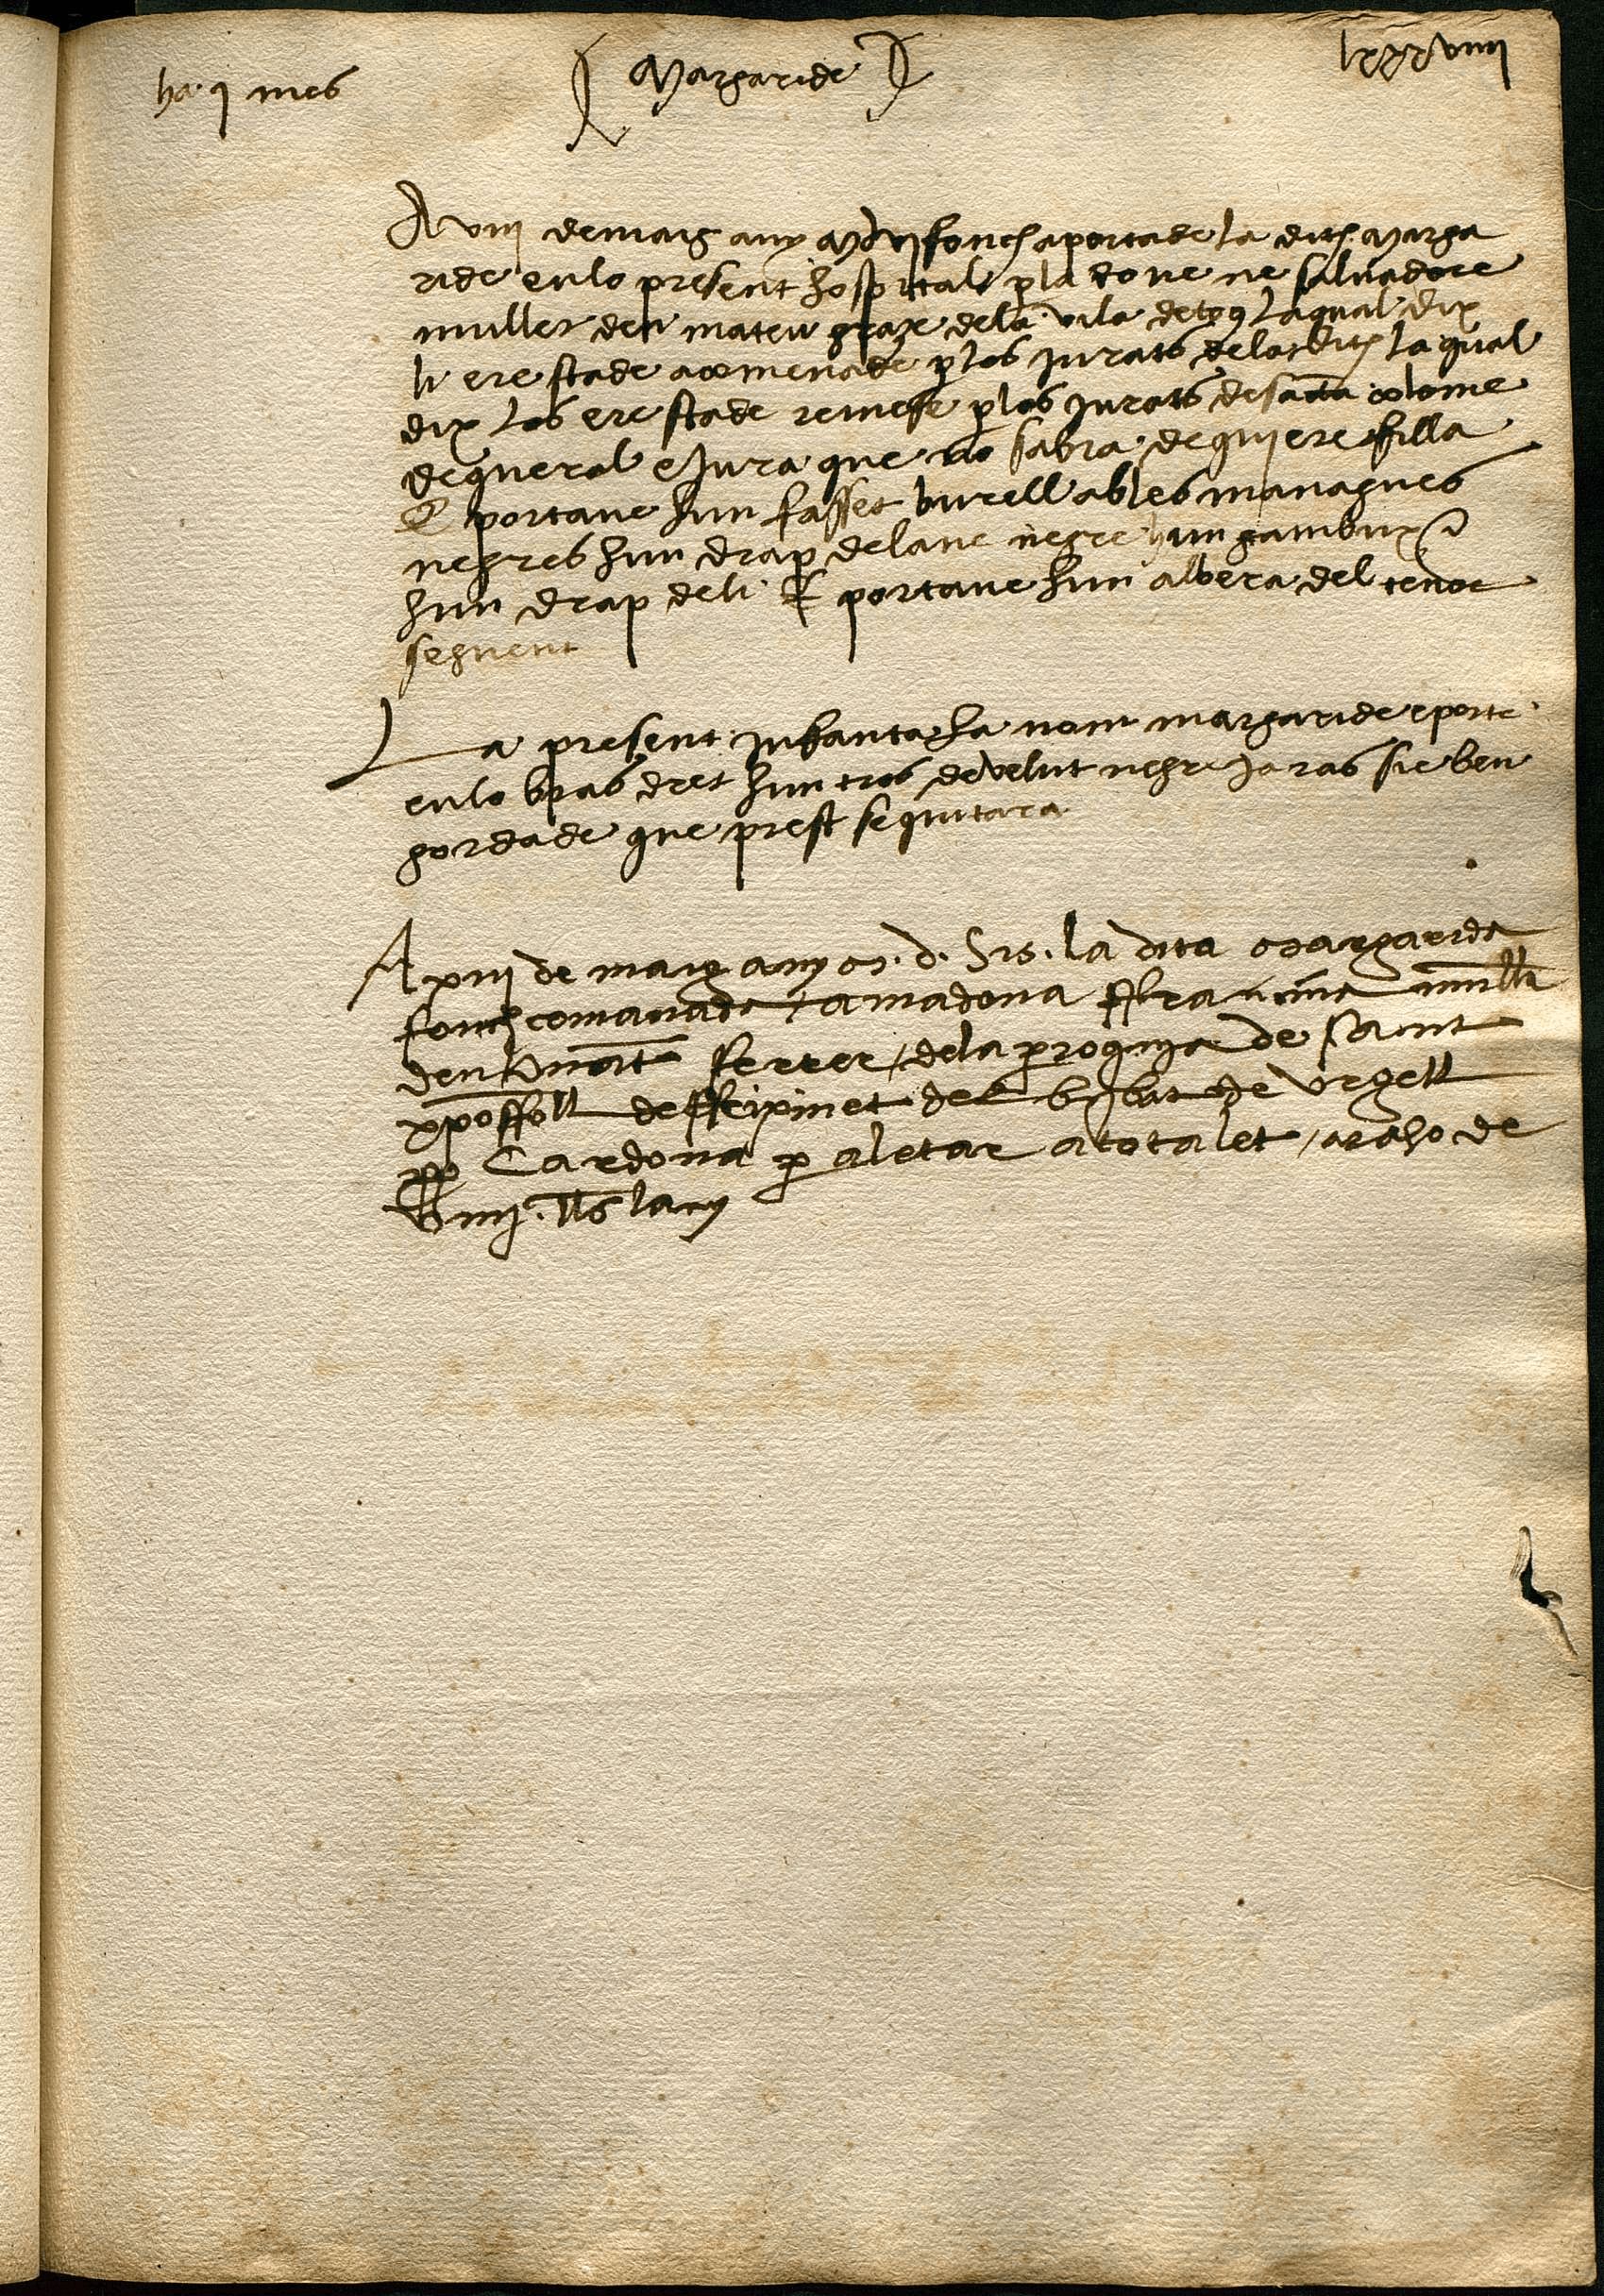 ha j mes
Margaride
lxxxviiii
A viii de maig any MDVI fonch aportade la dita Marga
ride en lo present hospital p la done ne salvadore
muller den mateu de la vila de laqual dix
li ere stade acomenade p los jurats de la dita la qual
dix los ere stade remese p los jurats de santa colome
de queral e jura que no sabra de qui ere filla
E portave hun fasset burell ab les manegues
negres hun drap de lane negre hun gambux e
hun drap de li E portave hun albera del tenor
seguent
La present infanta ha nom margaride e porte
en lo bras dret hun tros de velut negre ja ras sie ben
gordade que prest se quitara
A xiii de maig any M. d. Sis. la dita Margarida
fonch comanada / a madona ffrancina mull
den ferrer / de la proquia de sant
de del bisbat de urgell
pp Cardona p a letar a tota let / a raho de
iiii lls lany